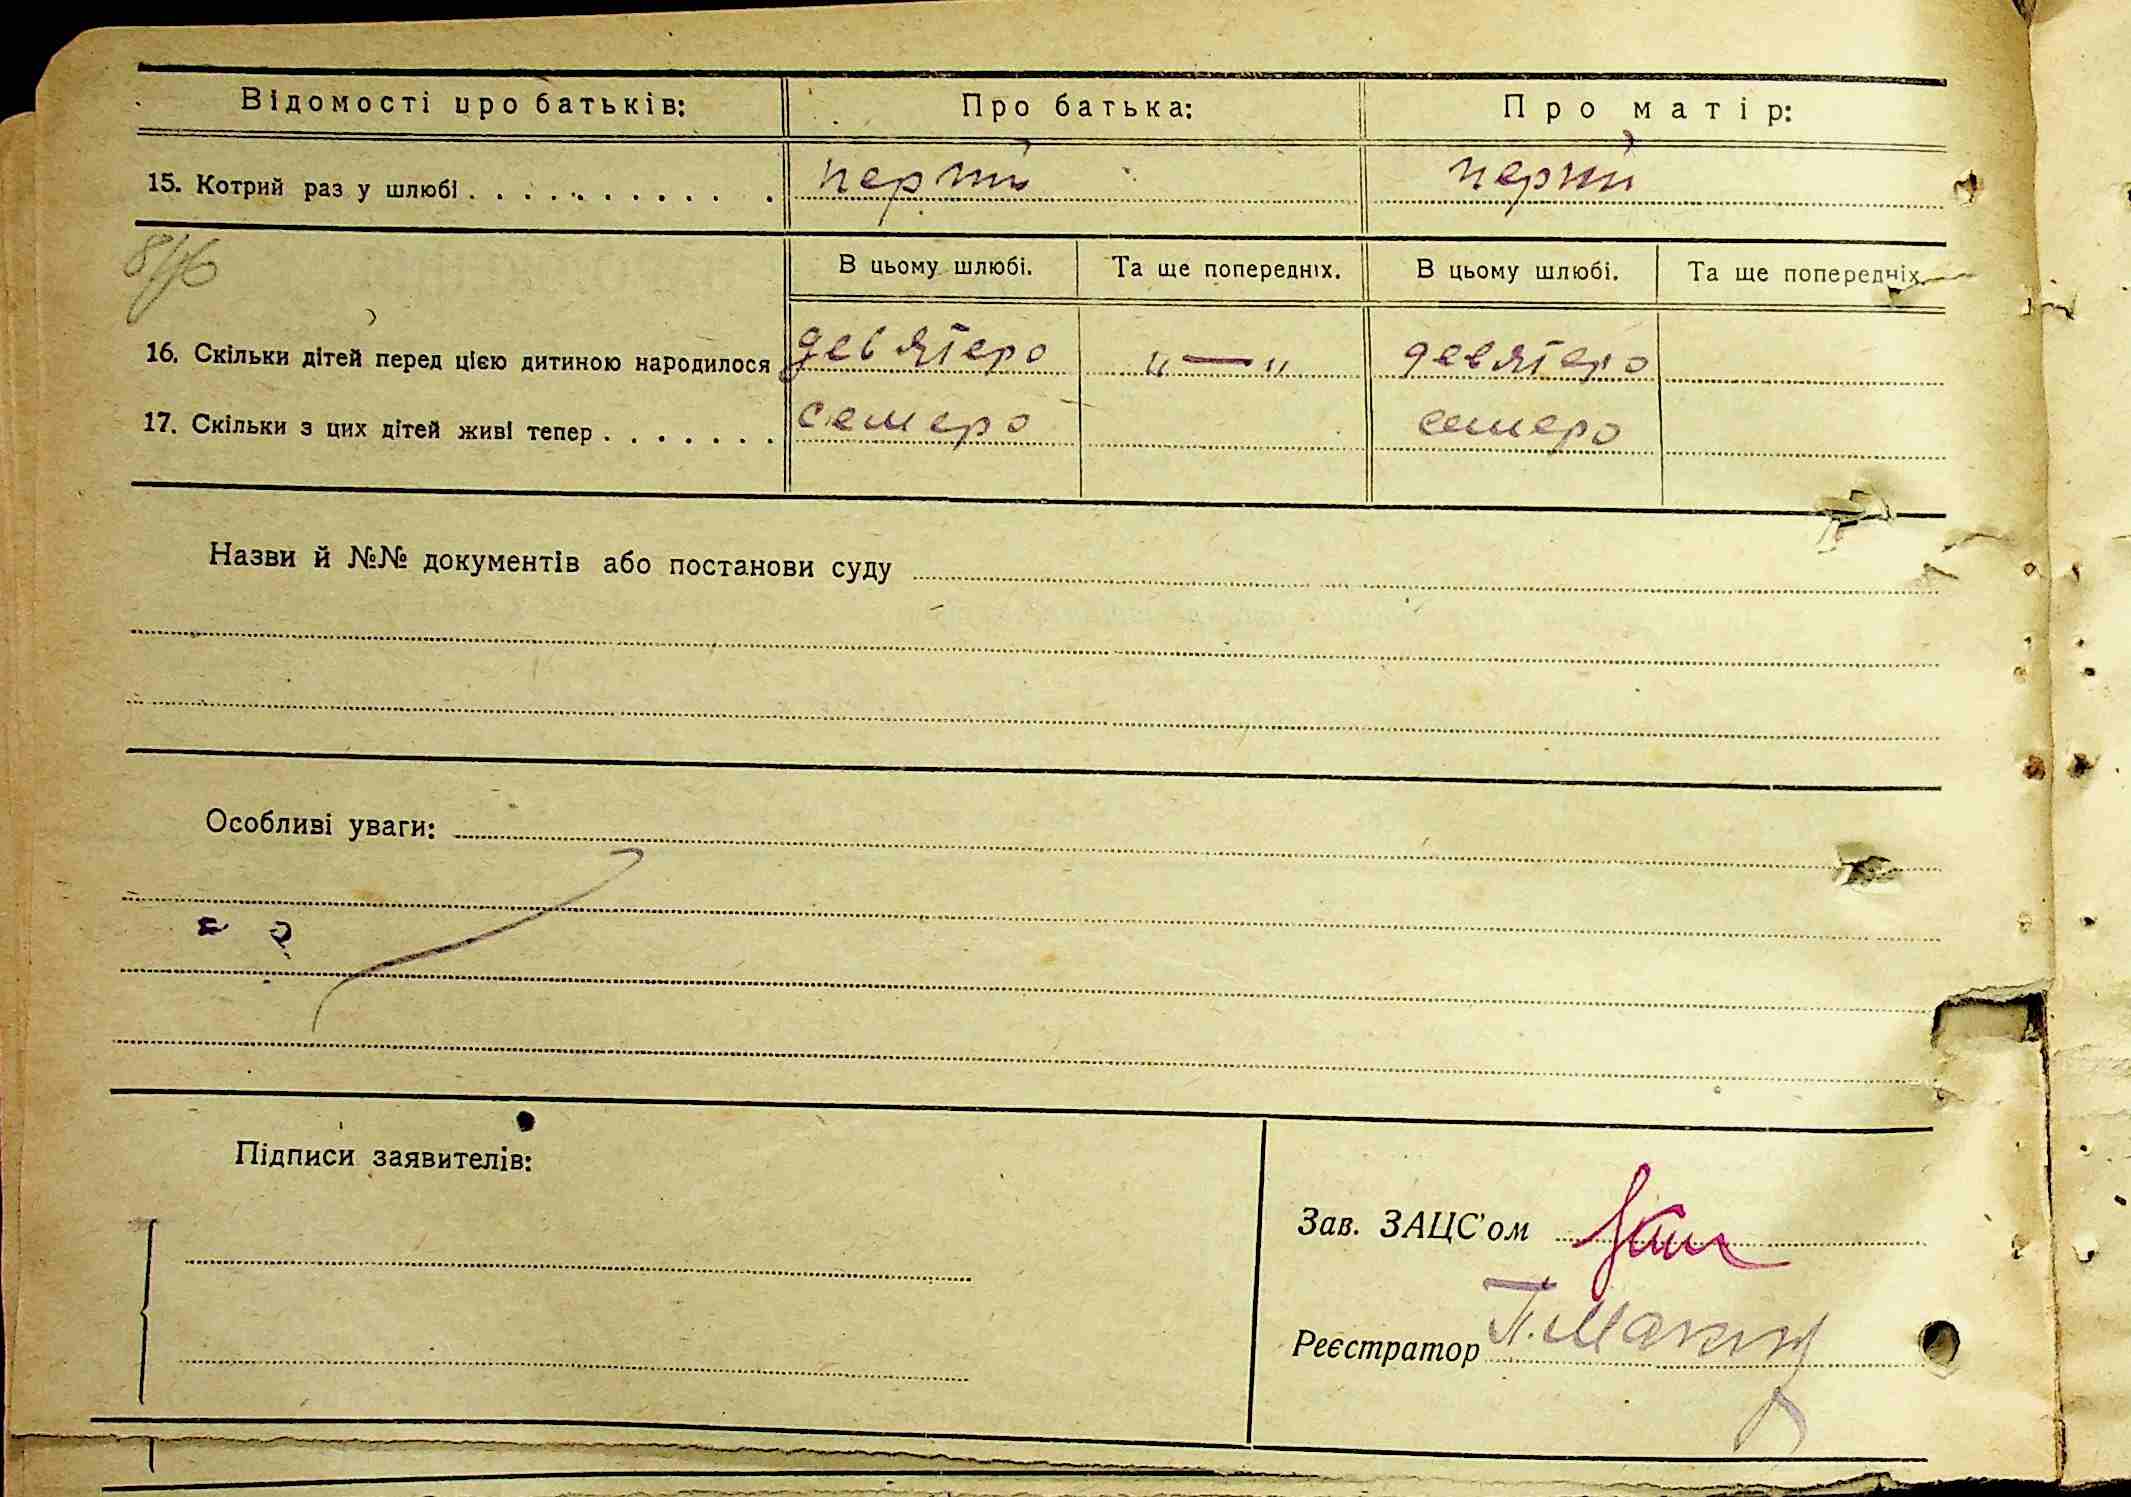 Відомості про батьків: Про батька: Про матір:
15. Котрий раз у шлюбі . . . . . . . . . . . перший перший
В цьому шлюбі. Та ще попередніх. В цьому шлюбі. Та ще попередніх.
16. Скільки дітей перед цією дитиною народилося девятеро „—„ девятеро
17. Скільки з цих дітей живі тепер . . . . . . . семеро семеро
Назви й №№ документів або постанови суду
Особливі уваги:
Підписи заявителів:
Зав. ЗАЦС'ом
Реєстратор